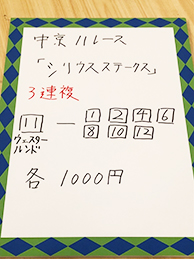 中京11レース
「シリウスステークス」
3連複
11 — 1 2 4 6
8 10 12
ウェスタールンド
各 1000円